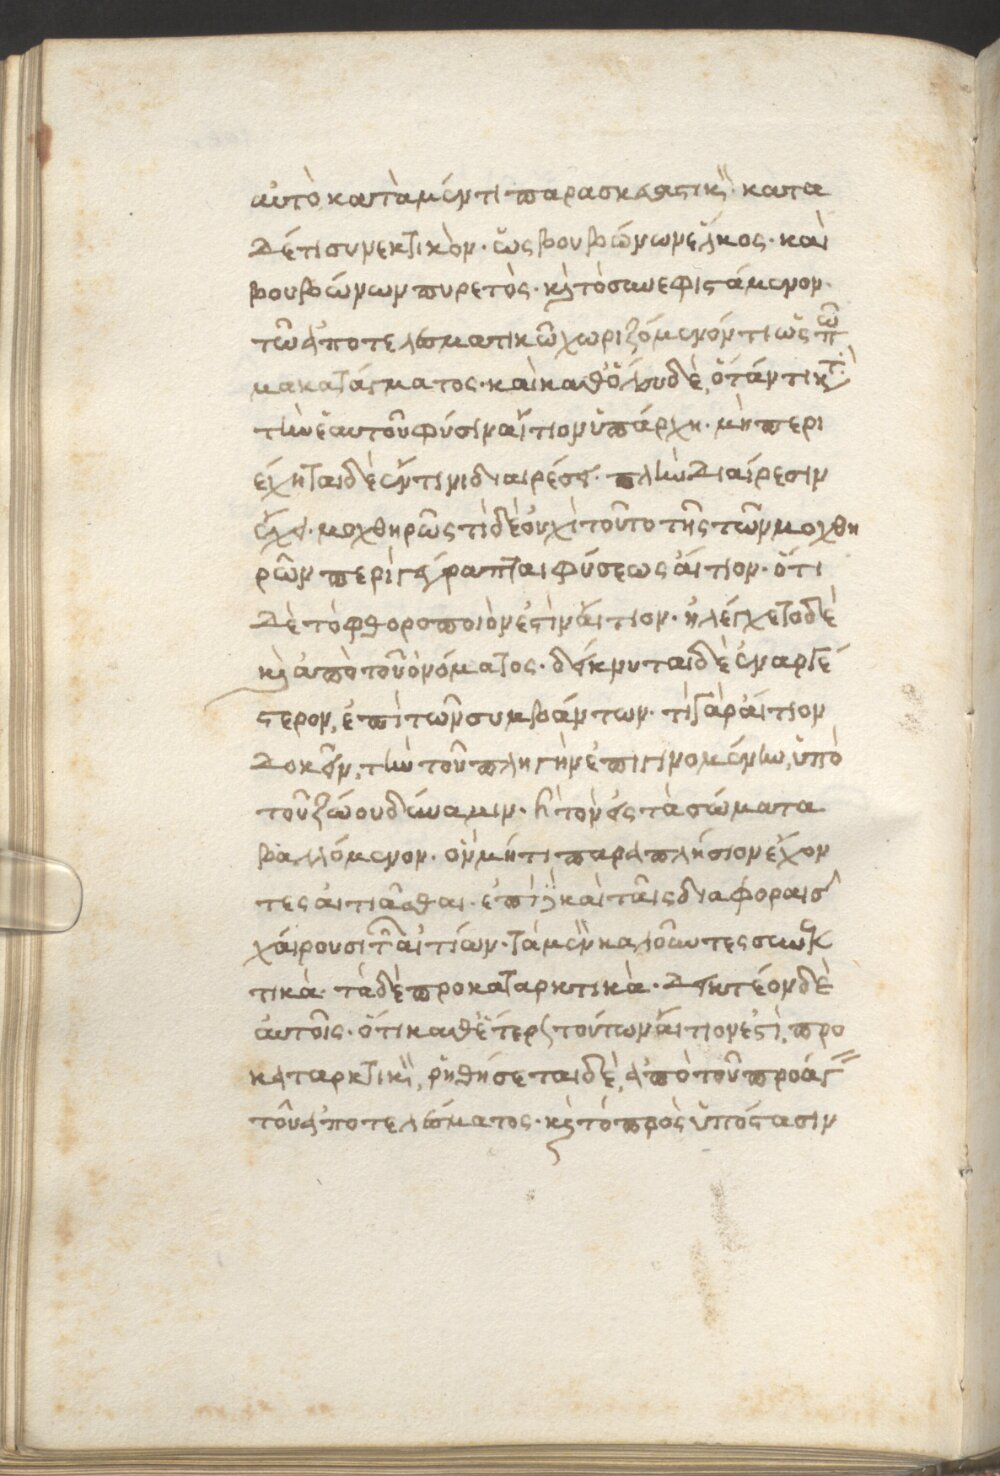 αὐτὸ κατὰ μέν τι παρασκευαστικὸν· κατα
δέ τι συνεκτικὸν· ὡς βουβώνων ἕλκος· καὶ
βουβώνων πυρετὸς· καὶ τὸ συνεφιστάμενον
τῶ ἀποτελέσματι κοῦ χωριζόμενόν τι ὡς ἐπὶ
μα κατάγματος· καὶ καθόλου δὲ, ὅτάν τι κτ
τὴν ἑαυτοῦ φύσιν αἴτιον ὑπάρχη· μὴ περι
έχηται δὲ ἔν τινι διαιρέσει· πλὴν διαίρεσιν
ἔχει· μοχθηρῶς τί δὲ οὐχὶ τοῦτο τῆς τῶν μοχθη
ρῶν περιγέγραπται φύσεως αἴτιον· ὅτι
δὲ τὸ φθοροποιόν ἐστὶν αἴτιον· ἠλέγχετο δὲ
καὶ ἀπὸ τοῦ ὀνόματος· δείκνυται δὲ ἐναργέ
στερον, ἐπὶ τῶν συμβάντων· τί γὰρ αἴτιον
δοκεῖν, τὴν τοῦ πληγὴν ἐπιγινομένην, ὑπὸ
τοῦ ζώου δύναμιν· ἢ τὸν εἰς τὰ σώματα
βαλλόμενον· οὐ μήτι παραπλήσιον ἔχον
τες αἰτιᾶσθαι· ἐπὶ καὶ ταῖς διαφοραῖς
χαίρουσι τῶν αἰτίων· τὰ μὲν καλοῦντες συνεκ
τικὰ· τὰ δὲ προκαταρκτικὰ· δεικτέον δὲ
αὐτοῖς· ὅτι καθ' ἕτερον τούτων αἴτιον ἐστὶ, προ
καταρκτικὸν, ῥηθήσεται δὲ, ἀπὸ τοῦ προάγειν
τοῦ ἀποτελέσματος· καὶ τὸ πρὸς ὑπόστασιν